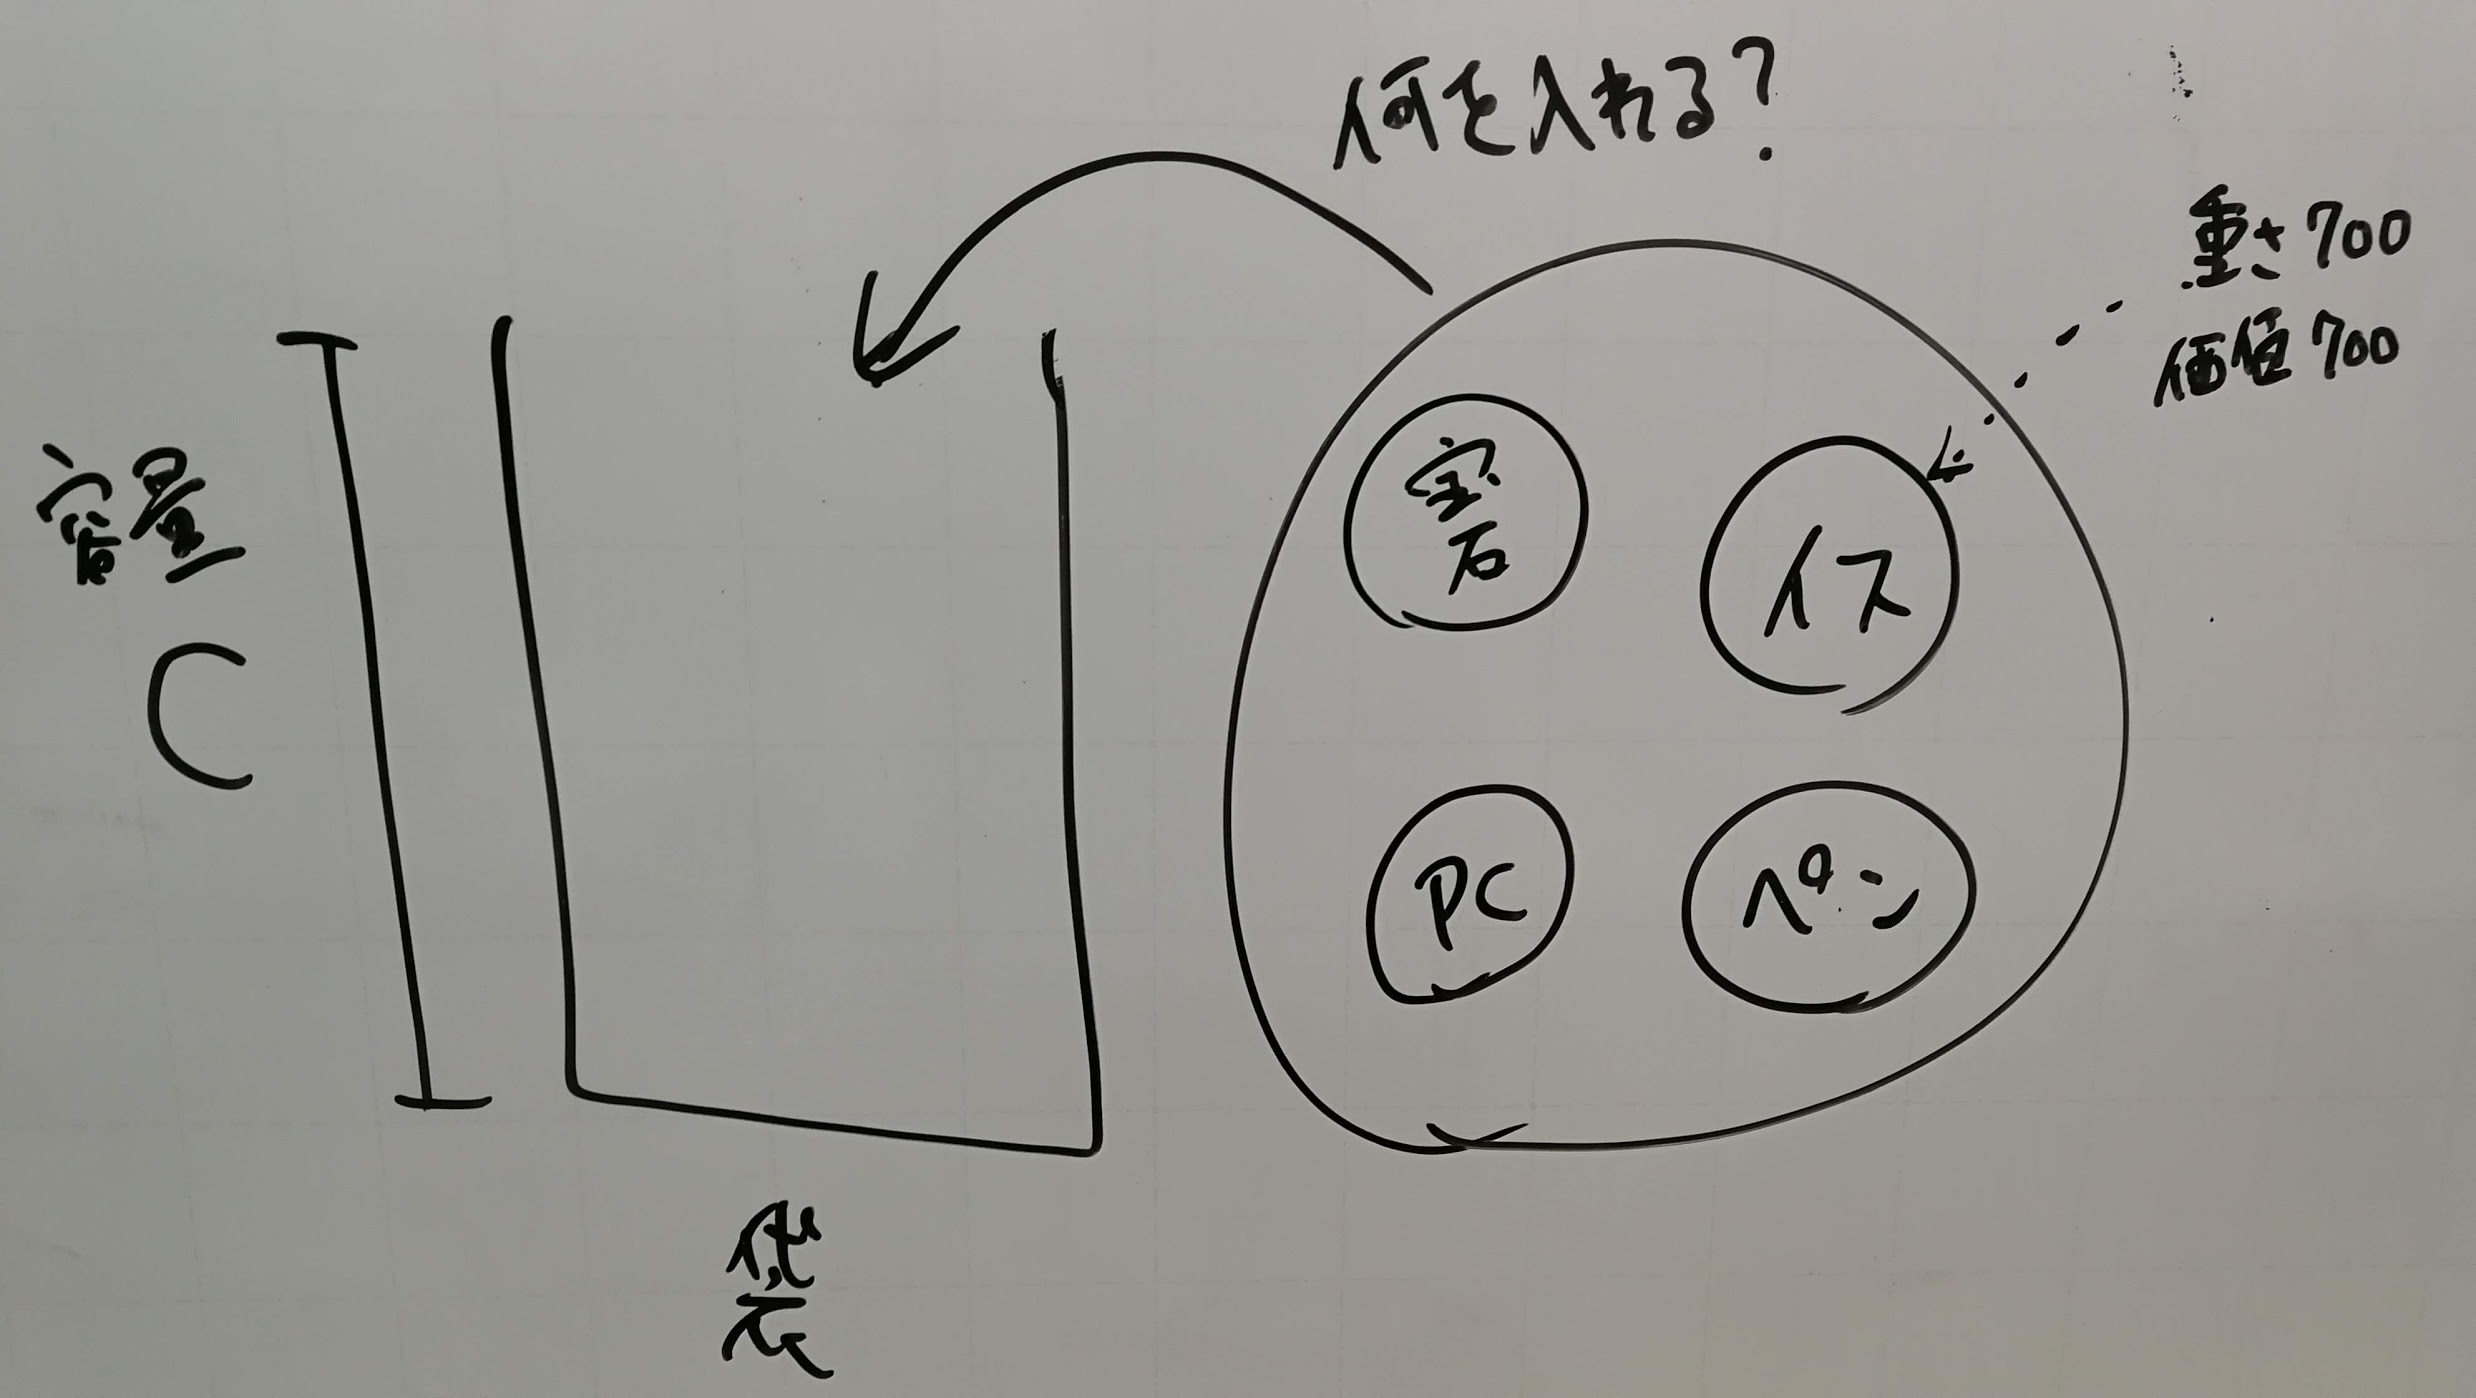 何を入れる?
重さ700
価値700
容量
C
宝石
イス
PC
ペン
袋